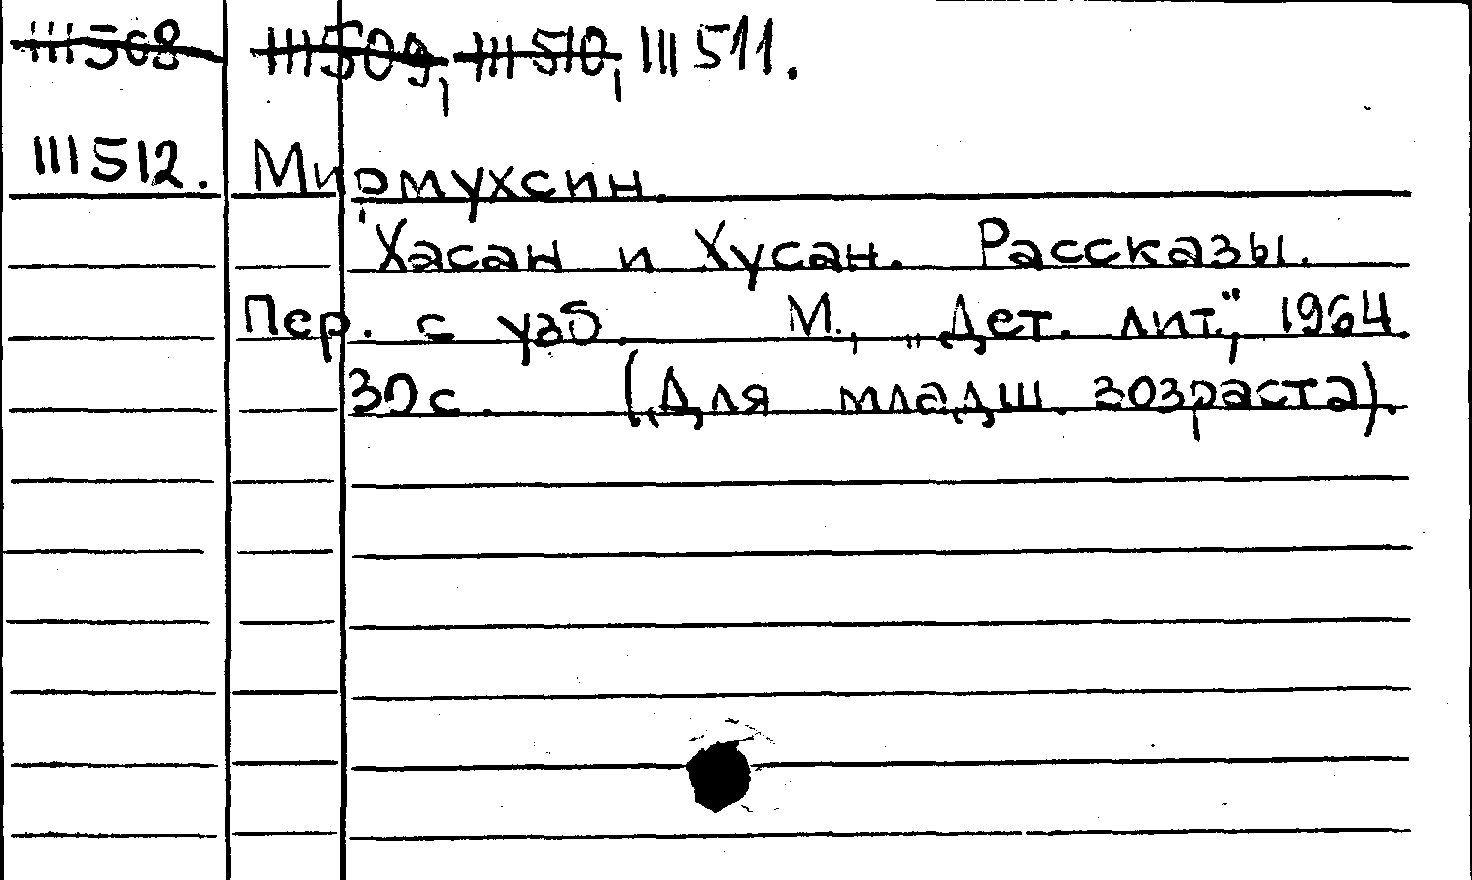 111508 111509, 111510, 111511.
111512. Мирмухсин.
Хасан и Хусан. Рассказы.
Пер. с узб. М., „Дет. лит.", 1964.
30 с. (Для младш. возраста).